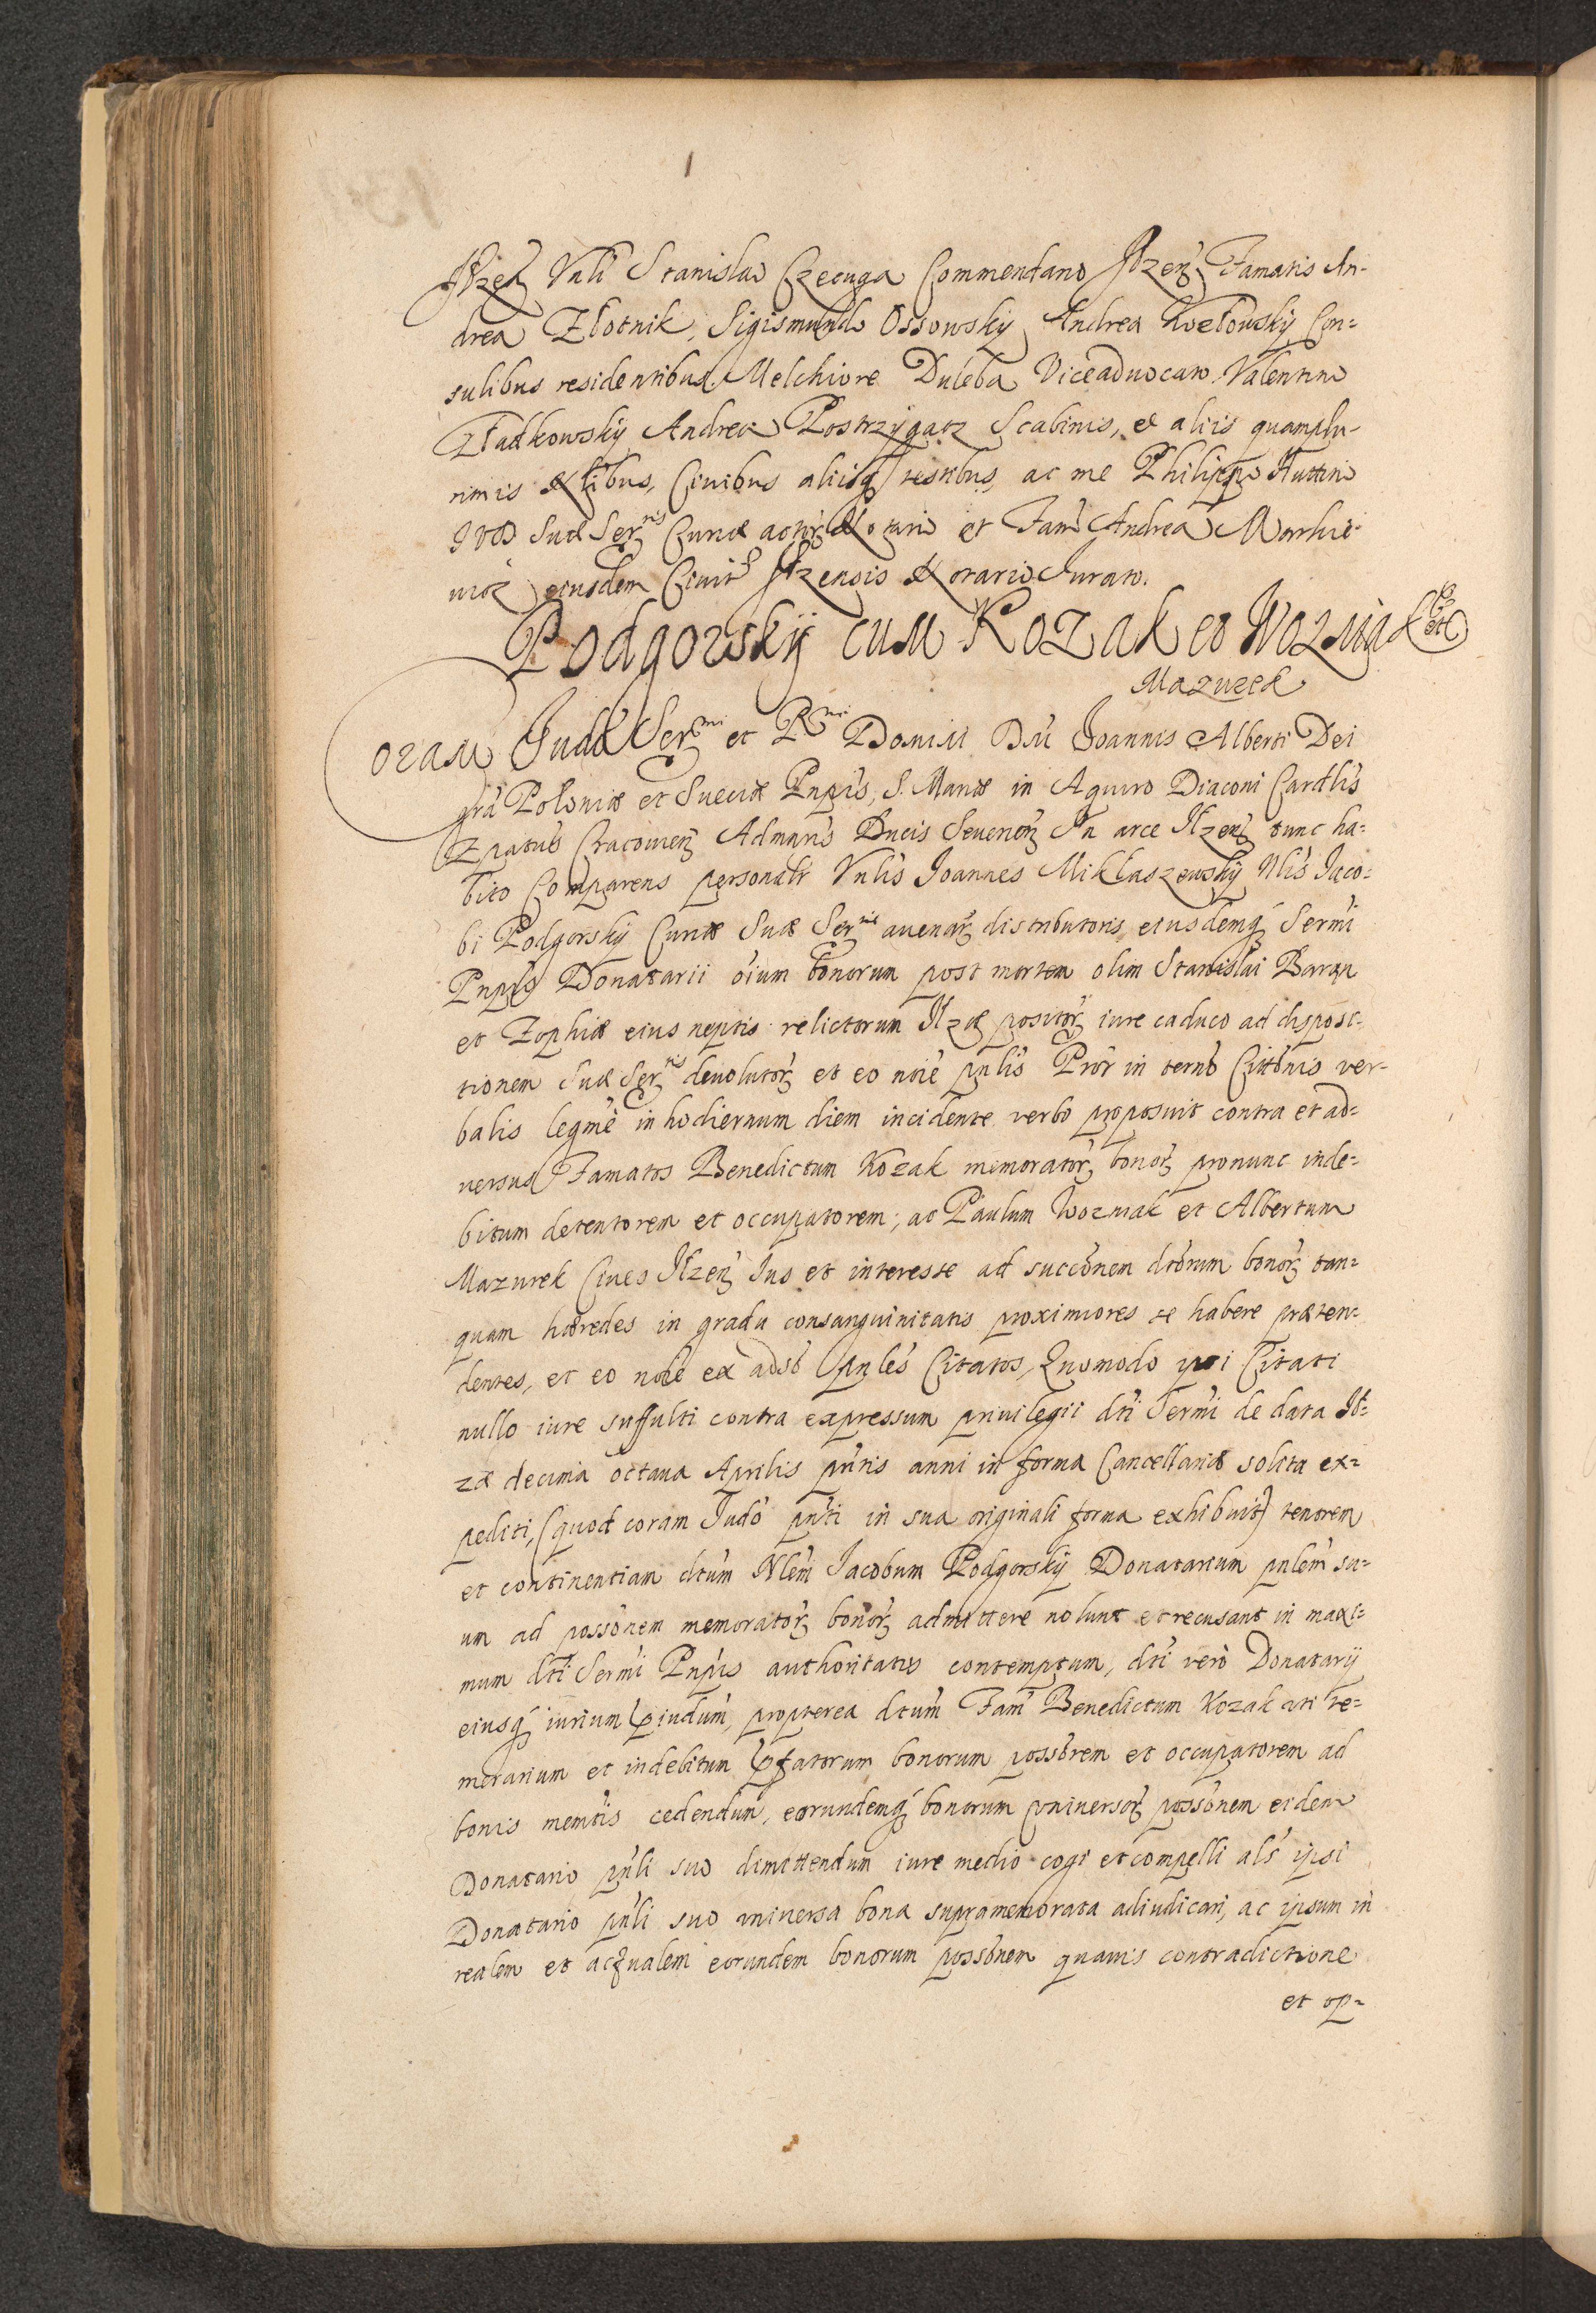 Ilzen Vnli Stanislao Czeczuga Commendario Ilzen Famatis An-
drea Złotnik, Sigismundo Ossowsky Andrea Kozłowsky Con=
sulibus residentibus. Melchiore Duleba Viceaduocato. Valentino
Zładkowsky Andrea Postrzÿgacz Scabinis, et aliis quamplu-
rimis Nobilibus, Ciuibus aliisq testibus, ac me Philippo
Suæ Ser^nis Curiæ actor Notario et Fam Andrea Markie-
wicz eiusdem Ciuit Ilzensis Notario Iurato.
Podgorskÿ cum Kozak et Wozniak etc
Mazurek
Coram Iudo Ser^mi et R^mi Domini Dni Ioannis Alberti Dei
gra Poloniæ et Sueciæ Pnpis, S. Mariæ in Aquiro Diaconi Cardlis
Epatus Cracouien Admnris Ducis Seuerien In arce Ilzen tunc ha=
bito Comparens personalr Vnlis Ioannes Mikłaszewskÿ Nlis Iaco=
bi Podgorskÿ Curiæ Suæ Ser^nis auenar distributoris eiusdemq Sermi
Pnpis Donatarii oium bonorum post mortem olim Stanislai Baran
et Zophiæ eius neptis relictorum Ilzæ positor iure caduco ad disposi=
tionem Suæ Ser^nis deuolutor et eo noie pnlis Pror in termo Cittonis ver-
balis legme in hodiernum diem incidente verbo proposuit contra et ad=
versus Famatos Benedictum Kozak memorator bonor pronunc inde=
bitum detentorem et occupatorem; ac Paulum Wozniak et Albertum
Mazurek Ciues Ilzen Ius et interesse ad succonem dtorum bonor tan=
quam hæredes in gradu consanguinitatis proximiores se habere præten=
dentes, et eo noie ex aduso pnles Citatos, Quomodo ipsi Citati
nullo iure suffulti contra expressum priuilegii dti Sermi de data Il=
zæ decima octaua Aprilis pntis anni in forma Cancellariæ solita ex=
pediti, (quod coram Iudo pnti in sua originali forma exhibuit) tenorem
et continentiam dtum Nlem Iacobum Podgorskÿ Donatarium pnlem su=
um ad possonem memorator bonor admittere nolunt et recusant in maxi=
mum dti Sermi Pnpis authoritatis contemptum, dti vero Donatarÿ
eiusq iurium piudum, propterea dtum Fam Benedictum Kozak uti te=
merarium et indebitum pfatorum bonorum possorem et occupatorem ad
bonis memtis cedendum, eorundemq bonorum vniuersor possonem eidem
Donatario pnli suo dimittendum iure medio cogi et compelli als ipsi
Donatario pnli suo vniuersa bona supramemorata adiudicari, ac ipsum in
realem et actualem eorundem bonorum possonem quauis contradictione
et op=